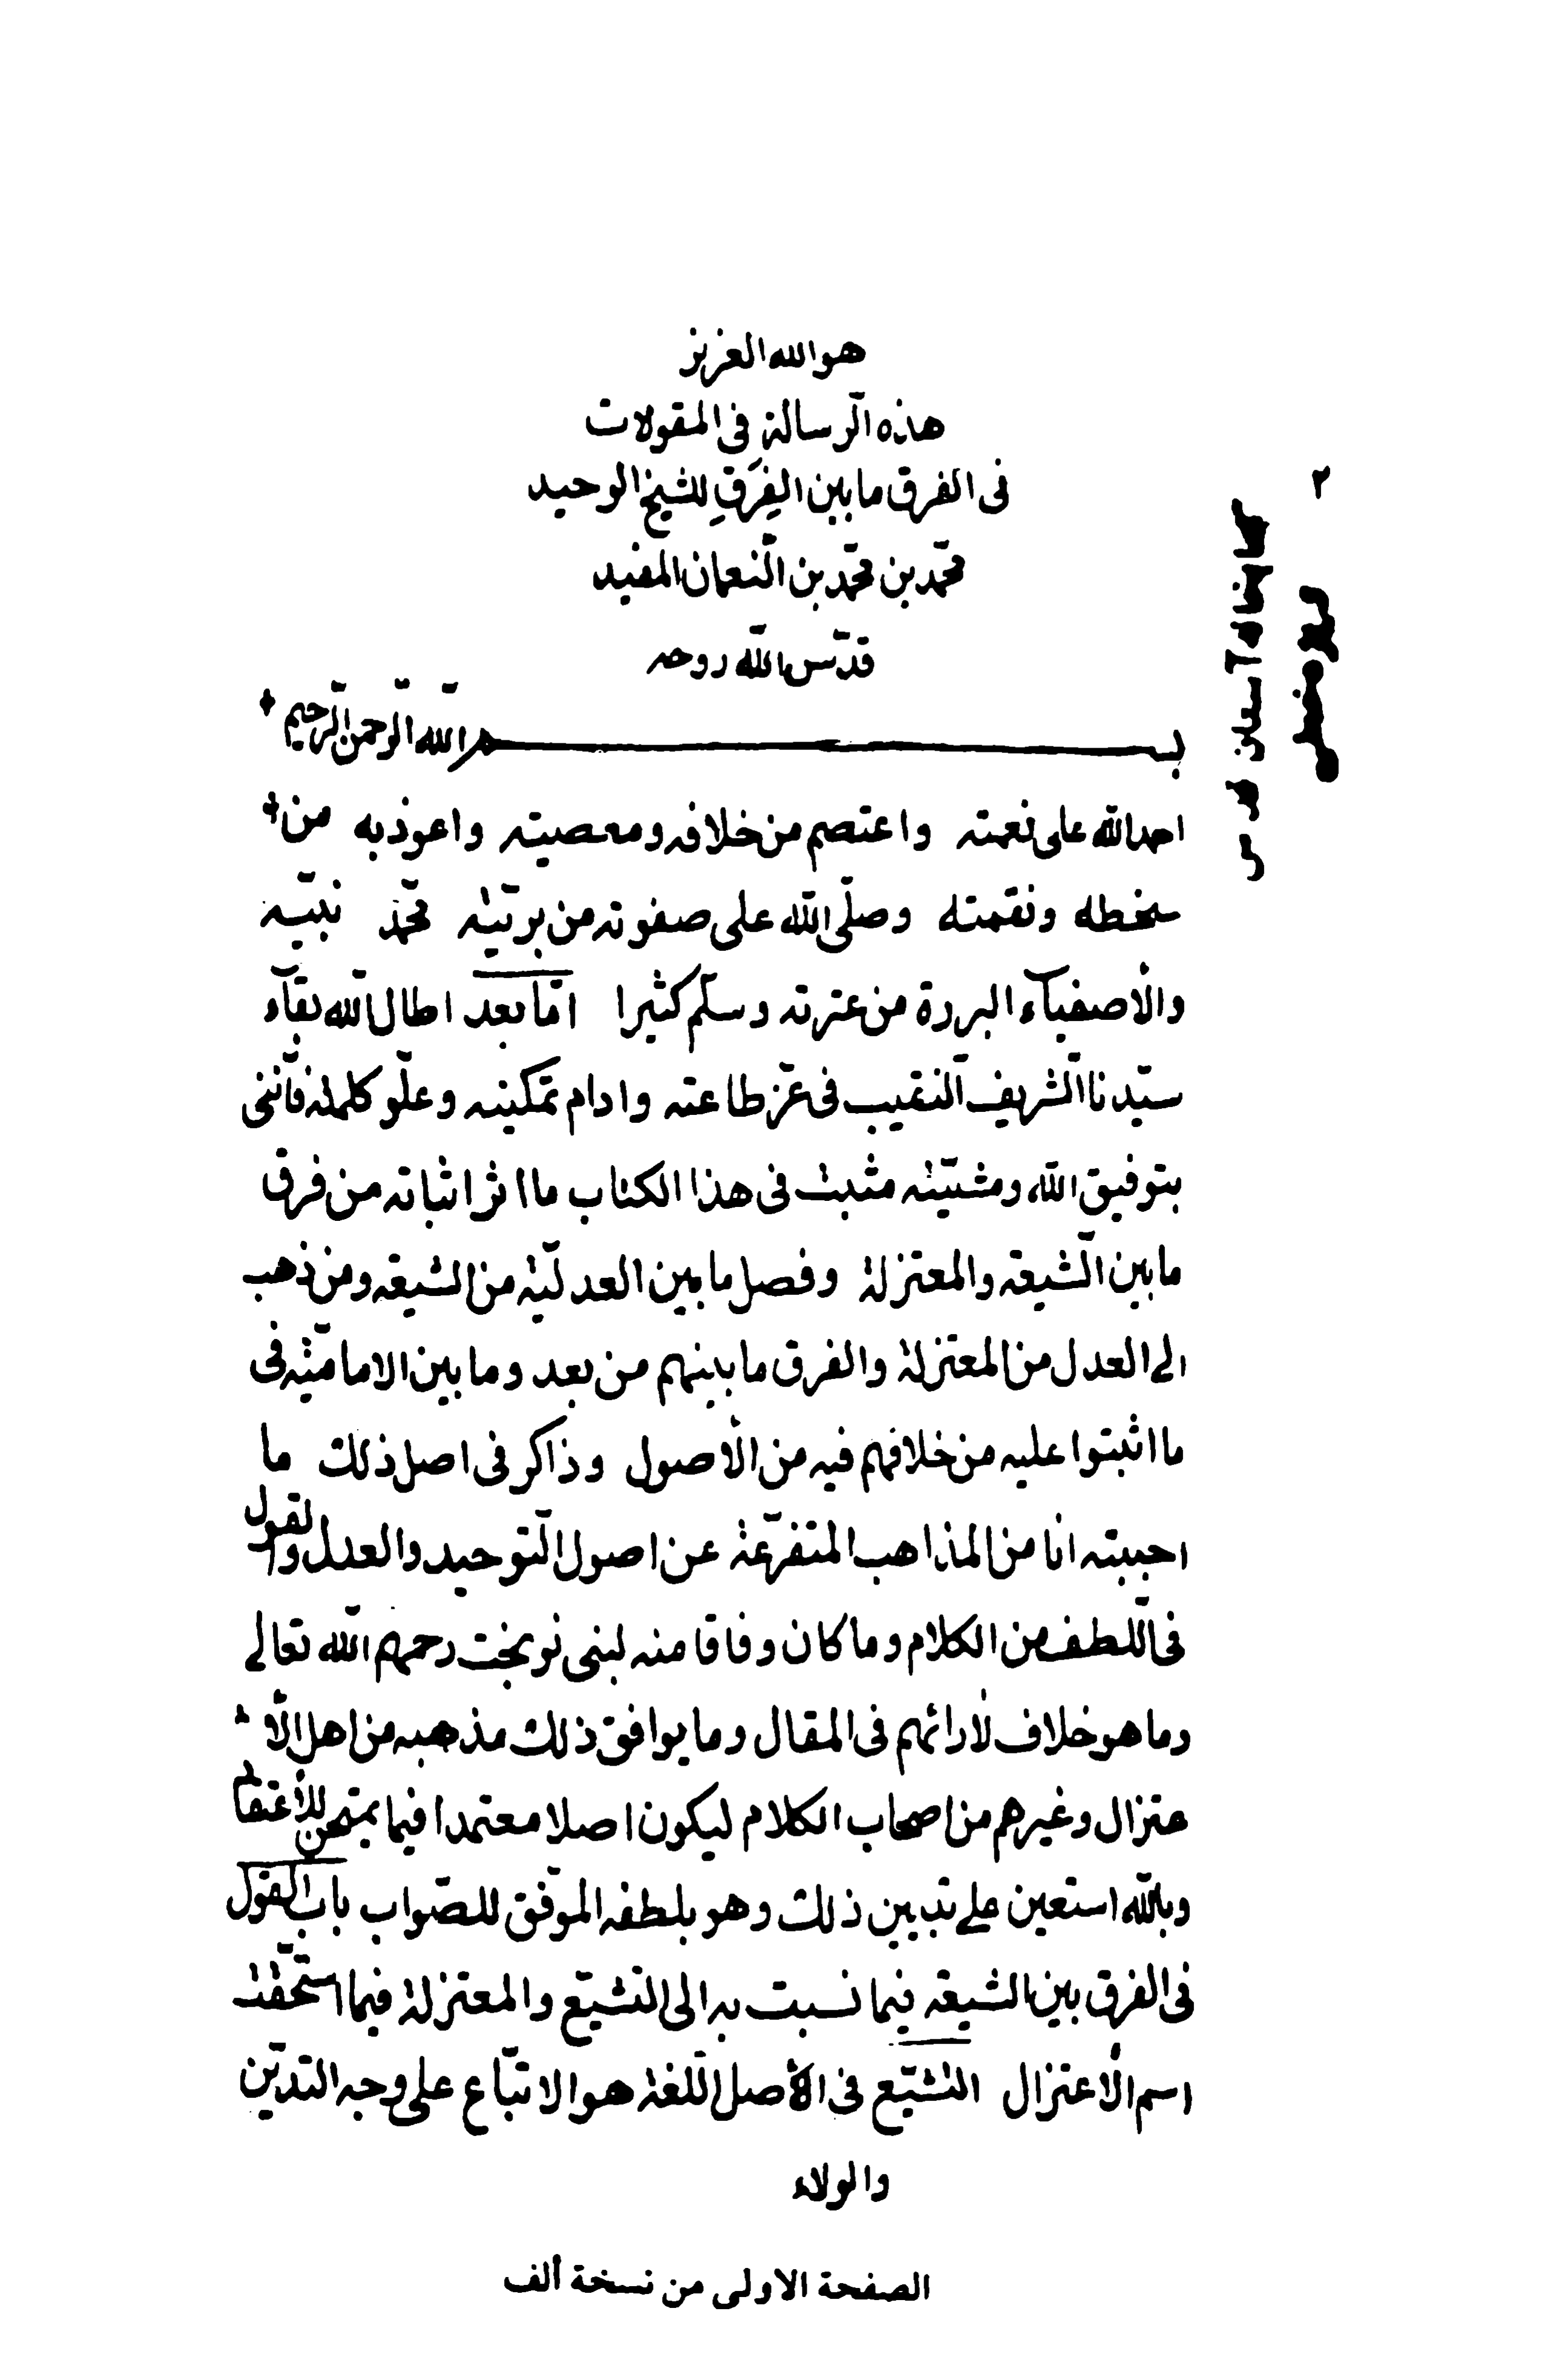 هو الله العزيز
هذه الرسالة فى المقولات
فى الفرق ما بين الفِرَقِ للشيخ الوحيد
محمّد بن محمّد بن النّعمان المفيد
قدّس الله روحه
بسم الله الرّحمن الرّحيم
احمد الله على نعمته واعتصم من خلافه ومعصيته واعوذ به من
سخطه ونقمته وصلّى الله على صفوته من بريّته محمّد نبيّه
والأصفيآء البررة من عترته وسلّم كثيرا امّا بعد اطال الله بقآء
سيّدنا الشّريف النّقيب فى عزّ طاعته وادام تمكينه وعلّو كلمته فانّنى
بتوفيق الله ومشيّته مثبت فى هذا الكتاب ما اثر اثباته من فرق
ما بين الشّيعه والمعتزلة وفصل ما بين العدليّة من الشيعه ومن ذهب
الى العدل من المعتزلة والفرق ما بينهم من بعد وما بين الاماميّه فى
ما اثبتوا عليه من خلافهم فيه من الأصول وذاكر فى اصل ذلك ما
اجببته انا من المذاهب المتفرّعة عن اصول التّوحيد والعدل والقول
فى اللّطف من الكلام وما كان وفاقا منه لبنى نوبخت رحمهم الله تعالى
وما هو خلاف لأرائهم فى المقال وما يوافق ذلك مذهبه من اهل الأ
عتزال وغيرهم من اصحاب الكلام ليكون اصلا معتمدا فيما يمتحن للأعتقاد
وبالله استعين على تبيين ذلك وهو بلطفه الموّفق للصّواب باب القول
فى الفرق بين الشيعه فيما نسبت به الى التشيّع والمعتزلة فيما استحقّت
اسم الأعتزال التشيّع فى الأصل اللّغة هو الاتبّاع على وجه التديّن
والولاء
الصفحة الاولى من نسخة ألف
٢